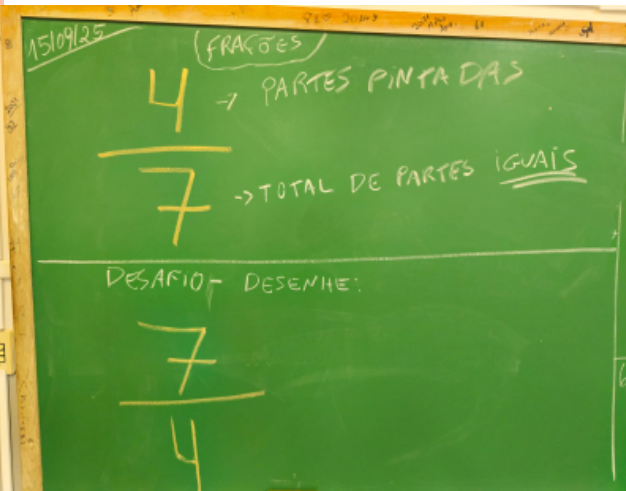 15/09/25
FRAÇÕES
4 → PARTES PINTADAS
7 → TOTAL DE PARTES IGUAIS
DESAFIO - DESENHE:
7
4